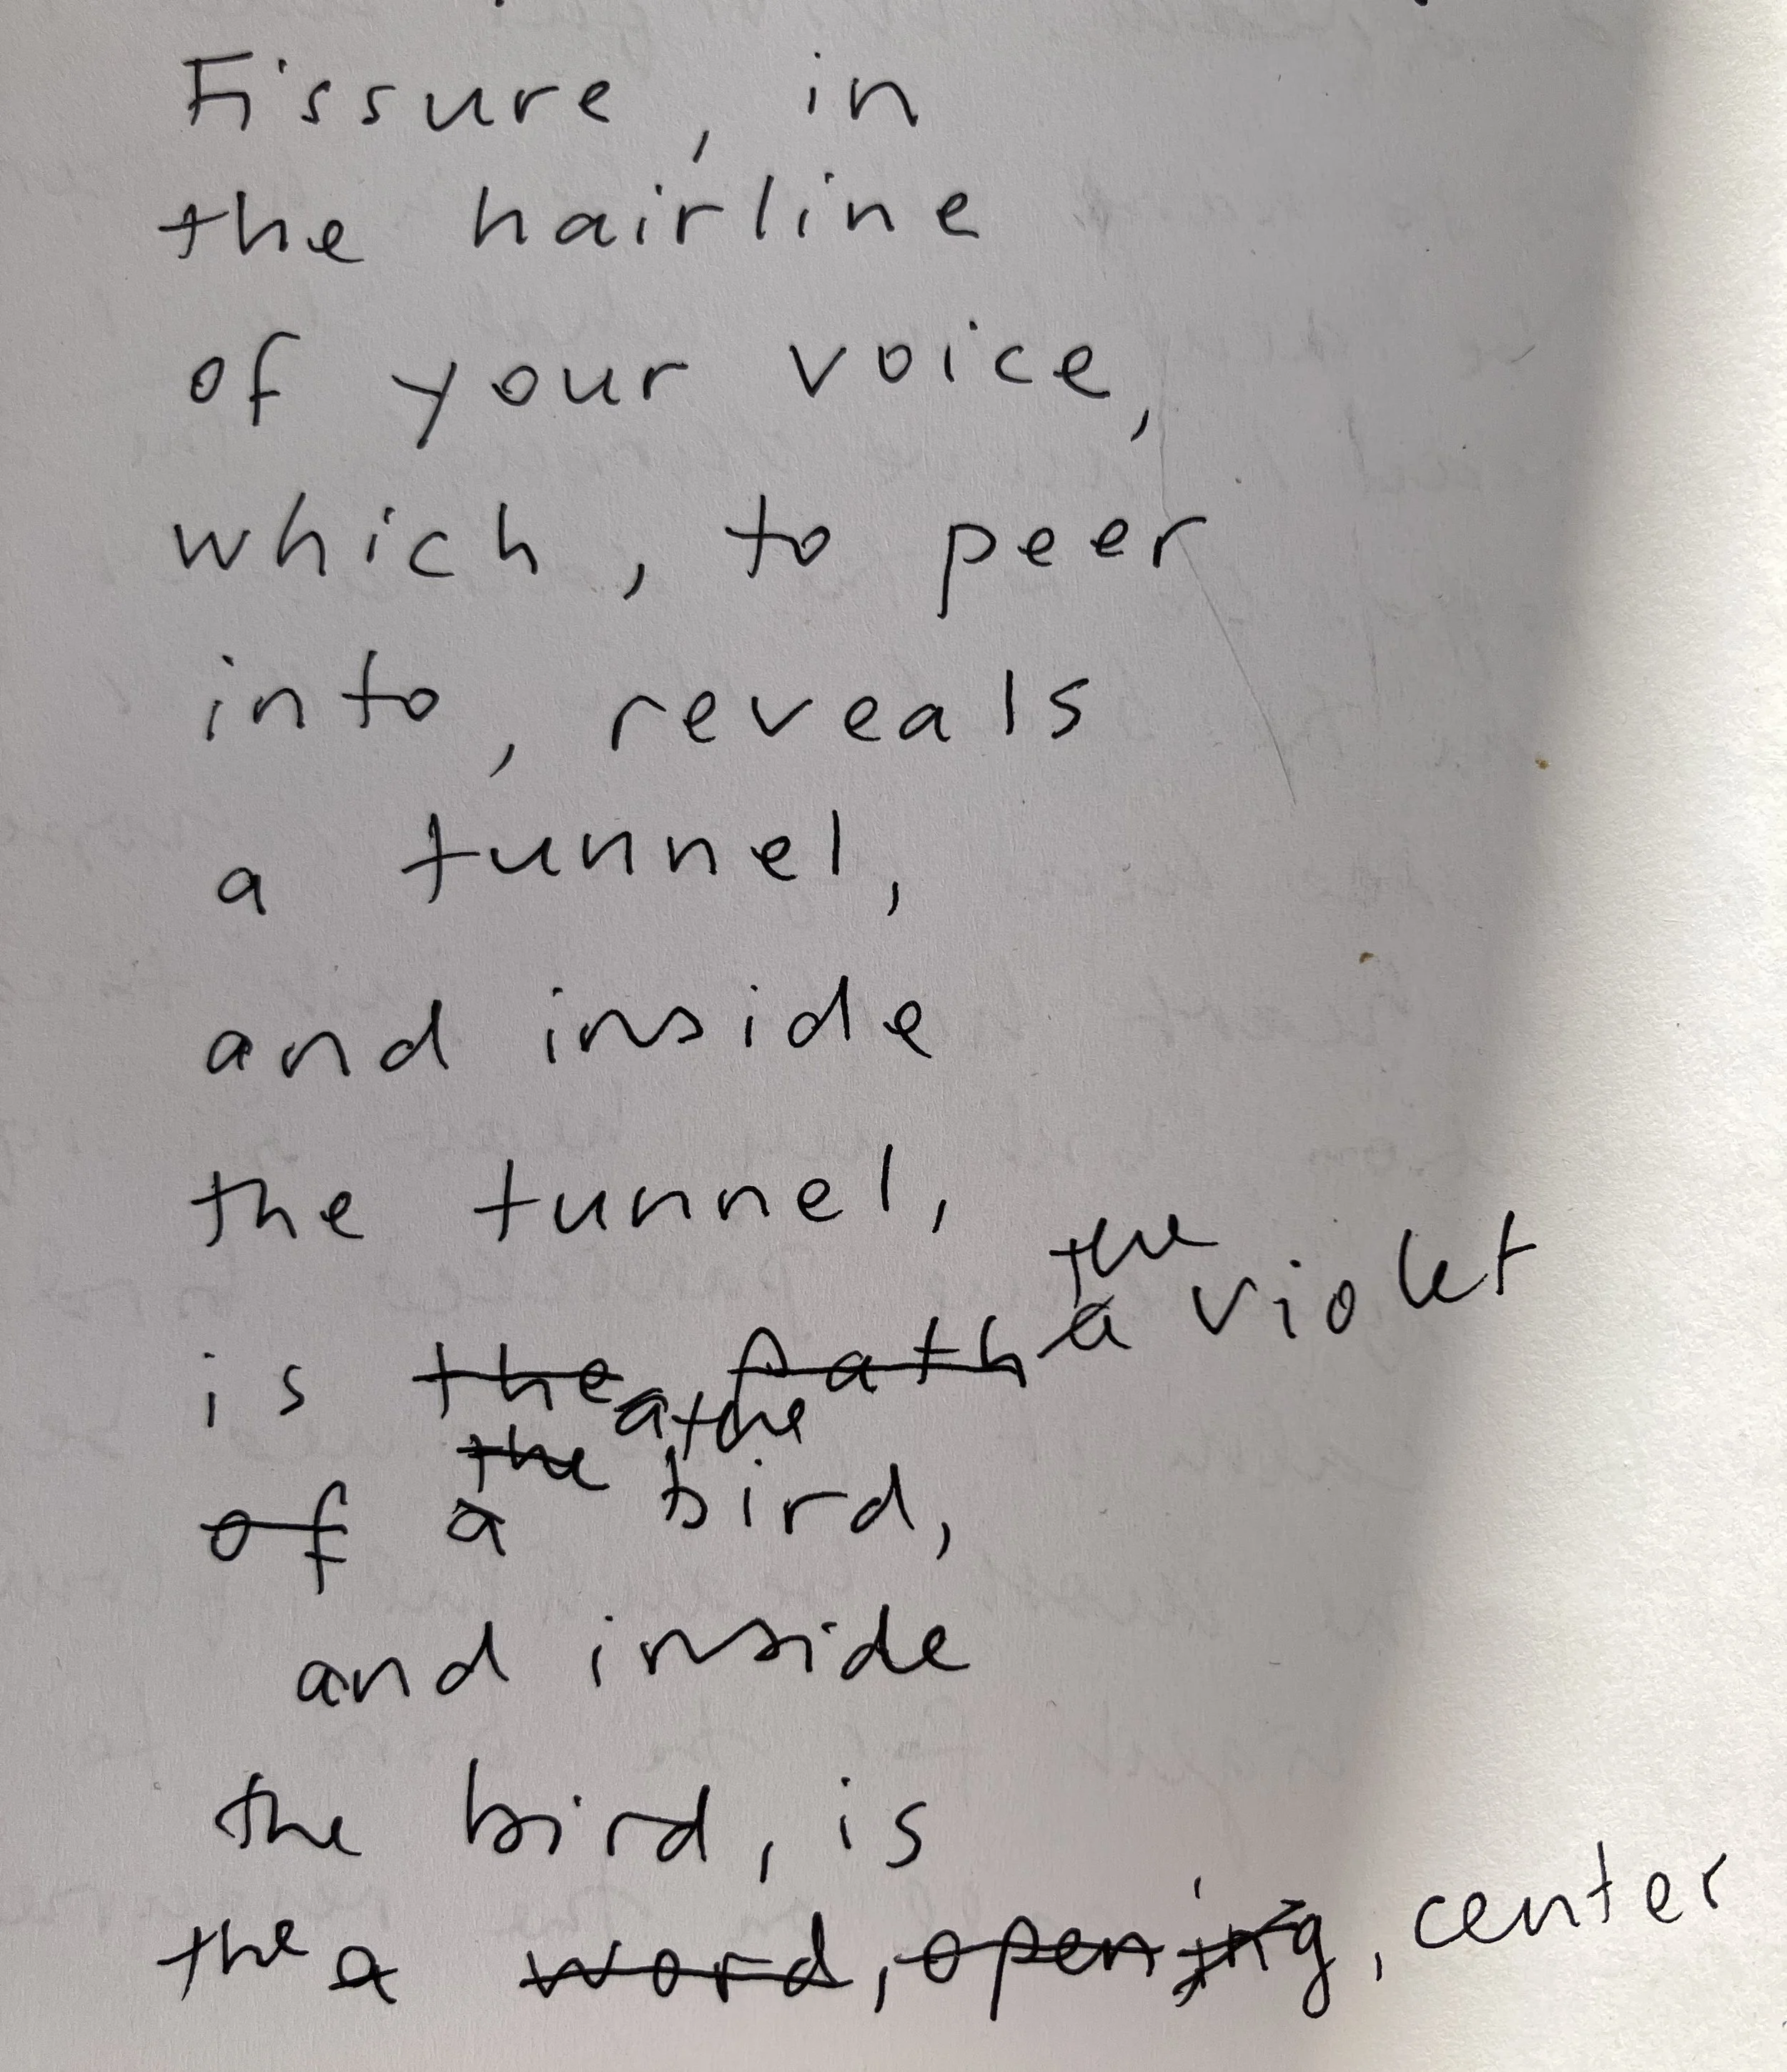 Fissure, in
the hairline
of your voice,
which, to peer
into, reveals
a tunnel,
and inside
the tunnel,
the
is the path a violet
a, the
the
of a bird,
and inside
the bird, is
the a word, opening, center